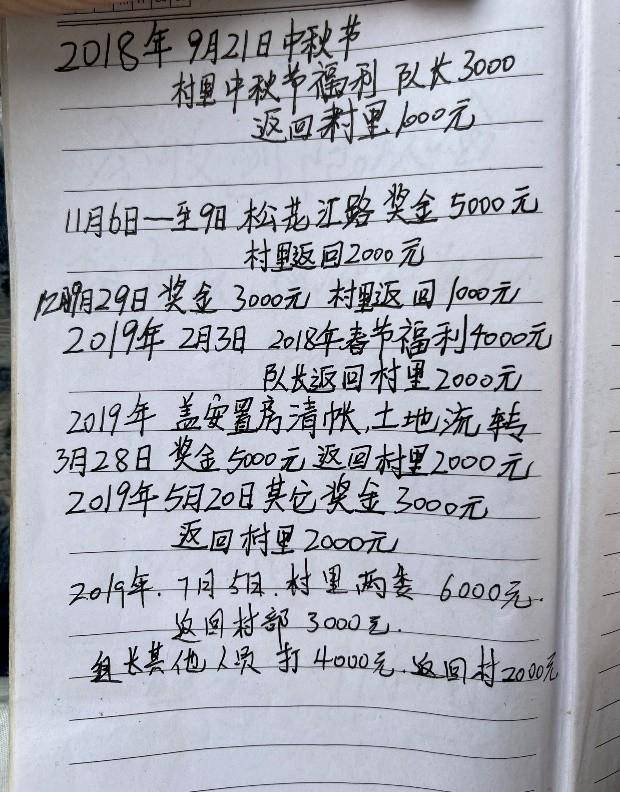 2018年 9月21日中秋节
村里中秋节福利 队长3000
返回村里1000元
11月6日一至9日 松花江路奖金5000元
村里返回2000元
12月29日 奖金 3000元 村里返回1000元
2019年 2月3日 2018年春节福利4000元
队长返回村里2000元
2019年 盖安置房清帐,土地流转
3月28日 奖金5000元返回村里2000元
2019年5月20日其它奖金3000元
返回村里2000元
2019年.7月5日.村里两委 6000元.
返回村部 3000元.
组长其他人员 打4000元.返回村2000元